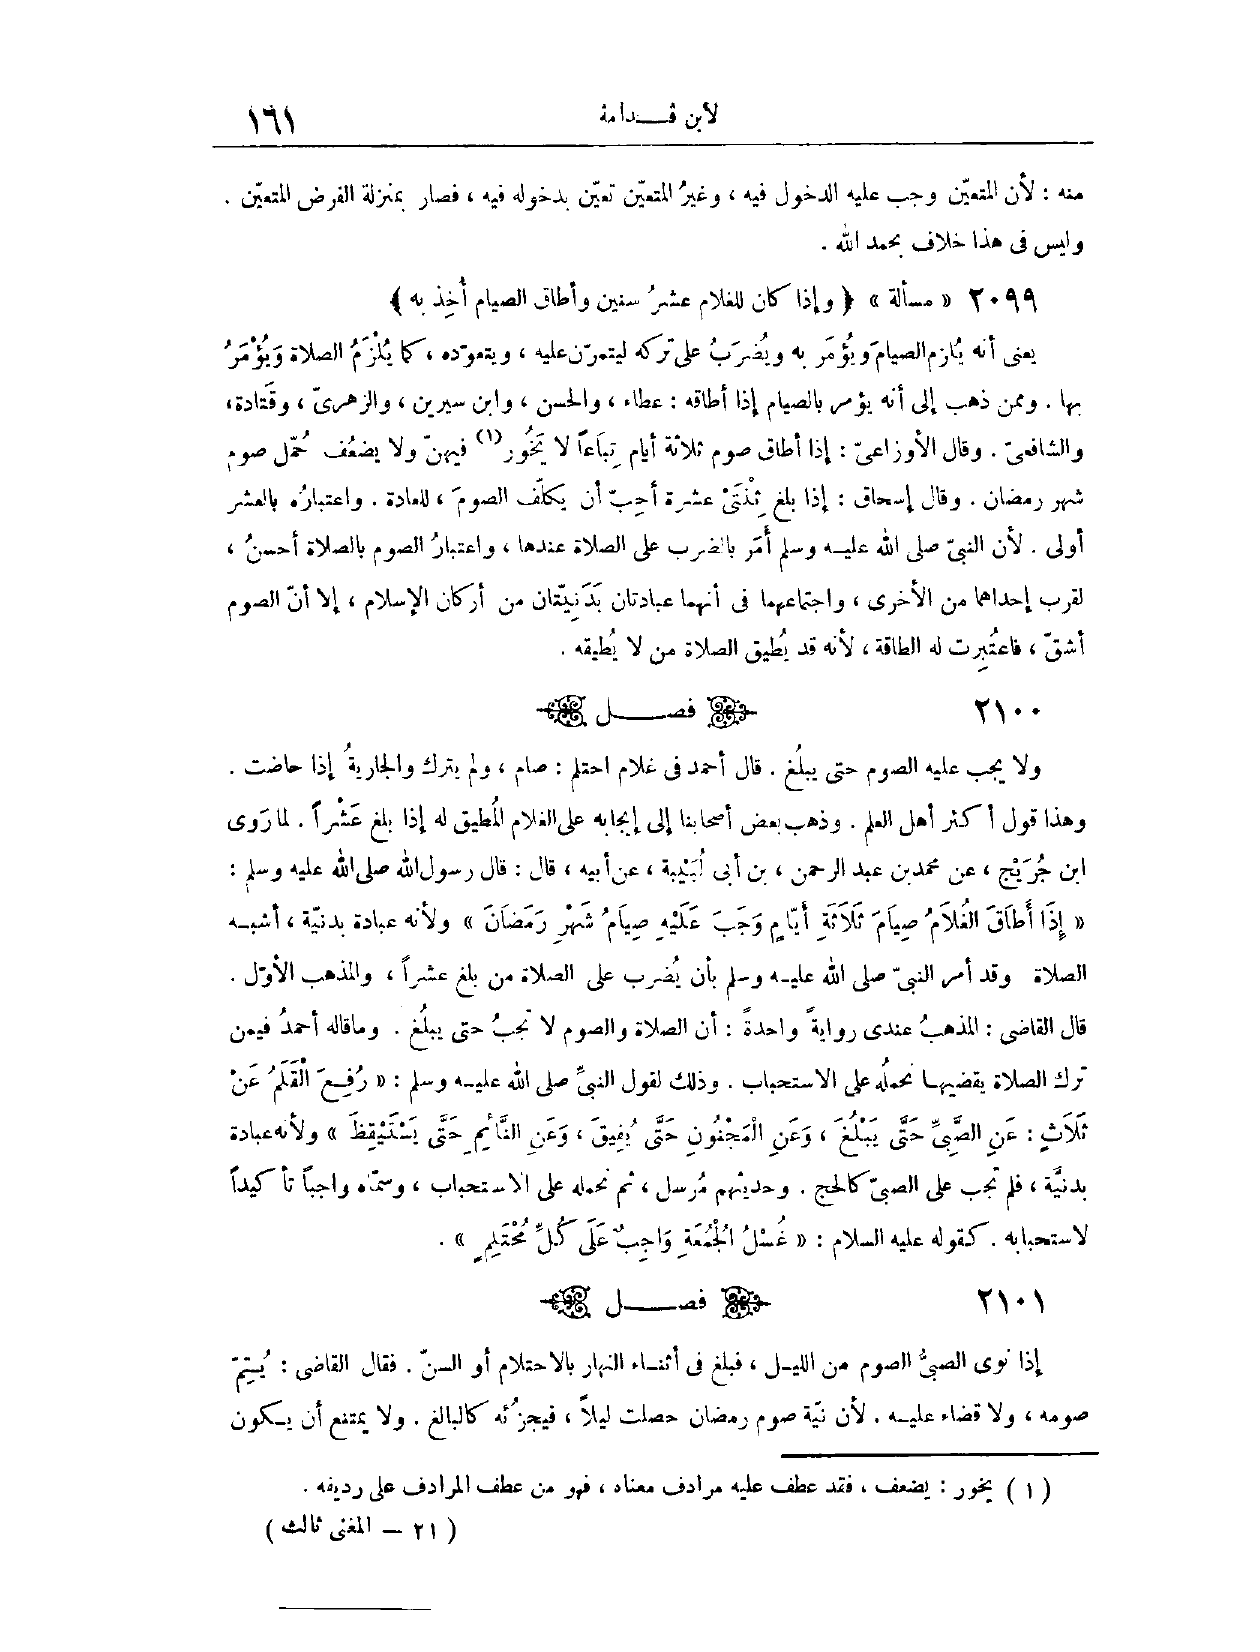 لابن قدامة ١٦١
منه : لأن المتعيّن وجب عليه الدخول فيه ، وغيرُ المتعيّن تعيّن بدخوله فيه ، فصار بمنزلة الفرض المتعيّن .
وليس فى هذا خلاف بحمد الله .
٢٠٩٩ « مسألة » ﴿ وإذا كان للغلام عشرُ سنين وأطاق الصيام أُخِذ به ﴾
يعنى أنه يُلزم الصيامَ ويُؤمَر به ويُضرَبُ على تركه ليتمرّن عليه ، ويتعوّده ، كما يُلْزَمُ الصلاة وَيُؤْمَرُ
بها . وممن ذهب إلى أنه يؤمر بالصيام إذا أطاقه : عطاء ، والحسن ، وابن سيرين ، والزهرىّ ، وقَتادة ،
والشافعىّ . وقال الأوزاعىّ : إذا أطاق صوم ثلاثة أيام تِبَاعًا لا يَخُور(١) فيهنّ ولا يضعُف حُمّل صوم
شهر رمضان . وقال إسحاق : إذا بلغ ثِنْتَىْ عشرة أحِبّ أن يكلّف الصومَ ، للعادة . واعتبارُه بالعشر
أولى . لأن النبىّ صلى الله عليـه وسلم أمَر بالضرب على الصلاة عندها ، واعتبارُ الصوم بالصلاة أحسنُ ،
لقرب إحداهما من الأخرى ، واجتماعهما فى أنهما عبادتان بَدَنِيّتان من أركان الإسلام ، إلا أنّ الصوم
أشقّ ، فاعتُبِرت له الطاقة ، لأنه قد يُطيق الصلاة من لا يُطيقه .
٢١٠٠ فصـــــل
ولا يجب عليه الصوم حتى يبلُغ . قال أحمد فى غلام احتلم : صام ، ولم يترك والجاريةُ إذا حاضت .
وهذا قول أكثر أهل العلم . وذهب بعض أصحابنا إلى إيجابه على الغلام المُطيق له إذا بلغ عَشْراً . لما رَوى
ابن جُرَيْج ، عن محمد بن عبد الرحمن ، بن أبى لُبَيْبة ، عن أبيه ، قال : قال رسول الله صلى الله عليه وسلم :
« إِذَا أَطَاقَ الغُلَامُ صِيَامَ ثَلَاثَةِ أَيَّامٍ وَجَبَ عَلَيْهِ صِيَامُ شَهْرِ رَمَضَانَ » ولأنه عبادة بدنيّة ، أشبـه
الصلاة وقد أمر النبىّ صلى الله عليـه وسلم بأن يُضرب على الصلاة من بلغ عشراً ، والمذهب الأوّل .
قال القاضى : المذهبُ عندى روايةً واحدةً : أن الصلاة والصوم لا تجبُ حتى يبلُغ . وماقاله أحمدُ فيمن
ترك الصلاة يقضيهـا نحملُه على الاستحباب . وذلك لقول النبىِّ صلى الله عليـه وسلم : « رُفِـعَ الْقَلَمُ عَنْ
ثَلَاثٍ : عَنِ الصَّبِىِّ حَتَّى يَبْلُغَ ، وَعَنِ الْمَجْنُونِ حَتَّى يُفِيقَ ، وَعَنِ النَّائِمِ حَتَّى يَسْتَيْقِظَ » ولأنه عبادة
بدنيَّة ، فلم تجب على الصبىّ كالحج . وحديثهم مُرسل ، ثم نحمله على الاستحباب ، وسمّاه واجباً تأكيداً
لاستحبابه . كقوله عليه السلام : « غُسْلُ الْجُمُعَةِ وَاجِبٌ عَلَى كُلِّ مُحْتَلِمٍ » .
٢١٠١ فصـــــل
إذا نوى الصبىُّ الصوم من الليـل ، فبلغ فى أثنـاء النهار بالاحتلام أو السنّ . فقال القاضى : يُـتِمّ
صومه ، ولا قضاء عليـه . لأن نيّة صوم رمضان حصلت ليلاً ، فيجزئُه كالبالغ . ولا يمتنع أن يـكون
( ١ ) يخور : يضعف ، فقد عطف عليه مرادف معناه ، فهو من عطف المرادف على رديفه .
( ٢١ — المغنى ثالث )